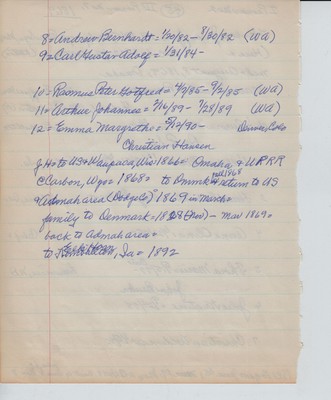 8= Andrew Bernhardt = 1/20/82 - 8/30/82 (WA)
9= Carl Gustav Adolf = 1/31/84 -
10= Rasmus Peter Gotfred = 4/7/85 - 9/2/85 (WA)
11= Arthur Johannes = 7/16/89 - 7/28/89 (WA)
12= Emma Margrethe = 5/12/90 - Denver, Colo
Christian Hansen
JH= to US & Waupaca, Wis 1866= Omaha & UPRR
@ Carbon, Wyo= 1868= to Dnmk & return to US
fall 1868
& Admah area (Dodge Co) 1869 in March=
family to Denmark = (Nov) - Mar 1869=
back to Admah area=
to , Ia = 1892